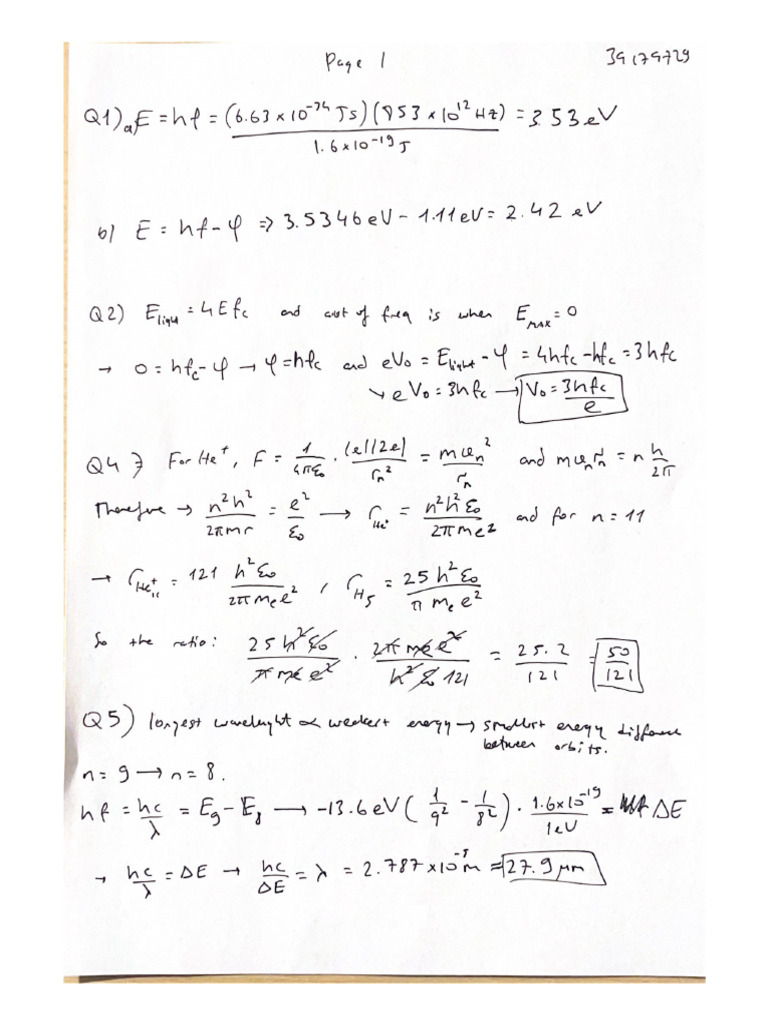 Page 1
39179729
Q1) a) E = hf = (6.63 × 10⁻³⁴ Js)(853 × 10¹² Hz) / 1.6 × 10⁻¹⁹ J = 3.53 eV
b) E = hf - φ ⇒ 3.5346 eV - 1.11 eV = 2.42 eV
Q2) E_light = 4Efc and cut of freq is when E_max = 0
→ 0 = hfc - φ → φ = hfc and eV₀ = E_light - φ = 4hfc - hfc = 3hfc
↘ eV₀ = 3hfc → V₀ = 3hfc / e
Q4) For He⁺, F = 1/4πε₀ · (e)(2e)/rₙ² = mωₙ²/rₙ and mωₙrₙ = n h/2π
Therefore → n²h²/2πmr = e²/ε₀ → r_He⁺ = n²h²ε₀/2πme² and for n = 11
→ r_He⁺₁₁ = 121 h²ε₀/2πmₑe² , r_H₅ = 25h²ε₀/πmₑe²
So the ratio: 25h²ε₀/πmee² · 2πmee²/h²ε₀121 = 25.2/121 = 50/121
Q5) longest wavelenght ∝ weakest energy → smallest energy difference
between orbits.
n = 9 → n = 8.
hf = hc/λ = E₉ - E₈ → -13.6 eV (1/9² - 1/8²) · 1.6×10⁻¹⁹/1eV = ΔE
→ hc/λ = ΔE → hc/ΔE = λ = 2.787 × 10⁻⁵ m = 27.9 μm